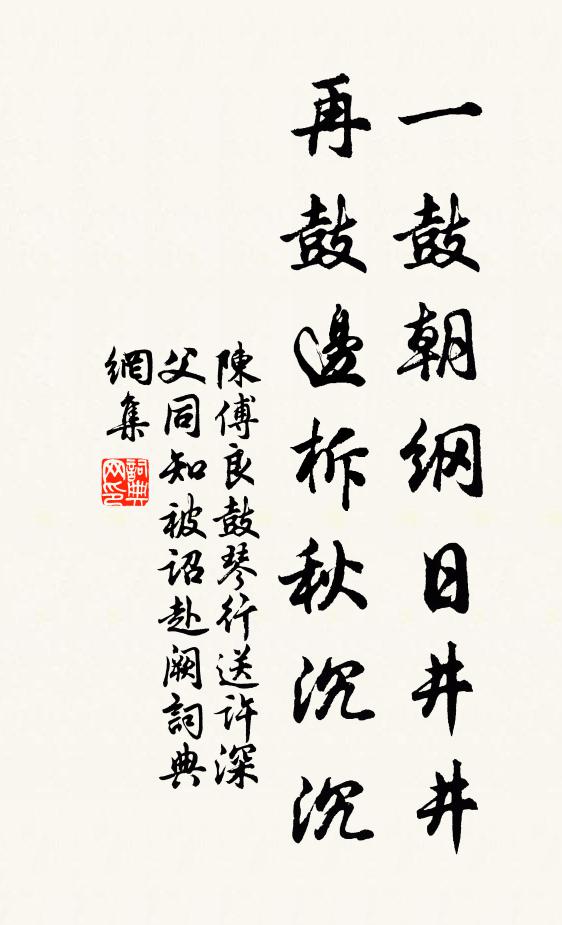 一鼓朝纲日井井
再鼓邊柝秋沉沉
陳傅良鼓琴行送许深
父同知被诏赴阙詞典
網集
詞典
网印